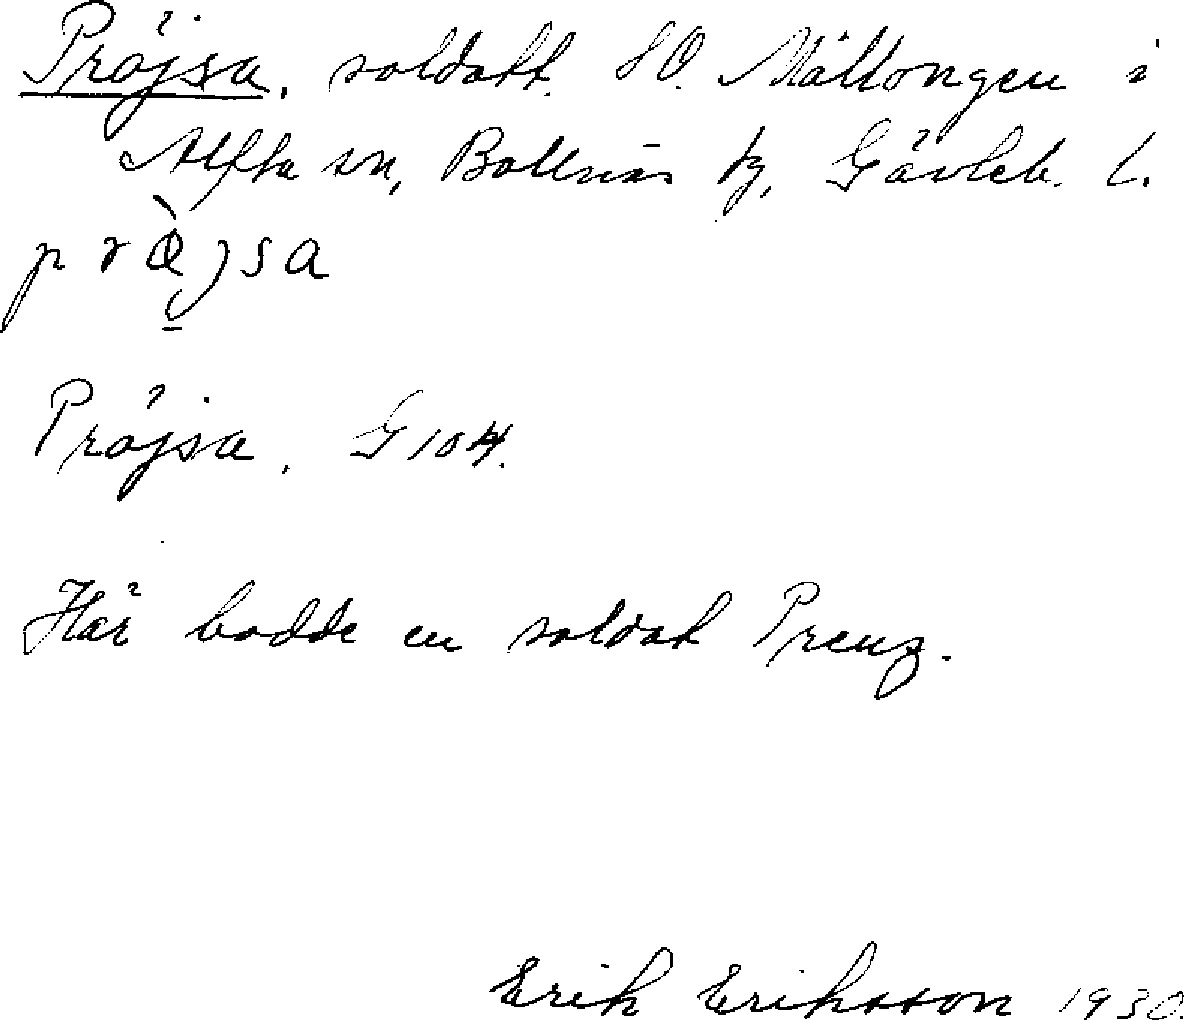 Pröjsa, soldatt. SO. Mållongen i
Alfta sn, Bollnäs tg, Gävleb. l.
Pröjsa. G 104.
Här bodde en soldat Preuz.
Erik Eriksson 1930.